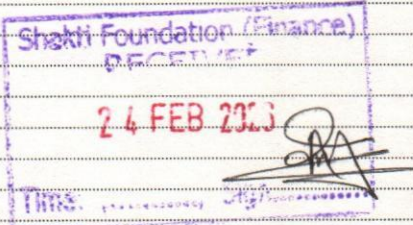 Shakti Foundation (Finance)
RECEIVED
24 FEB
Time: Sign